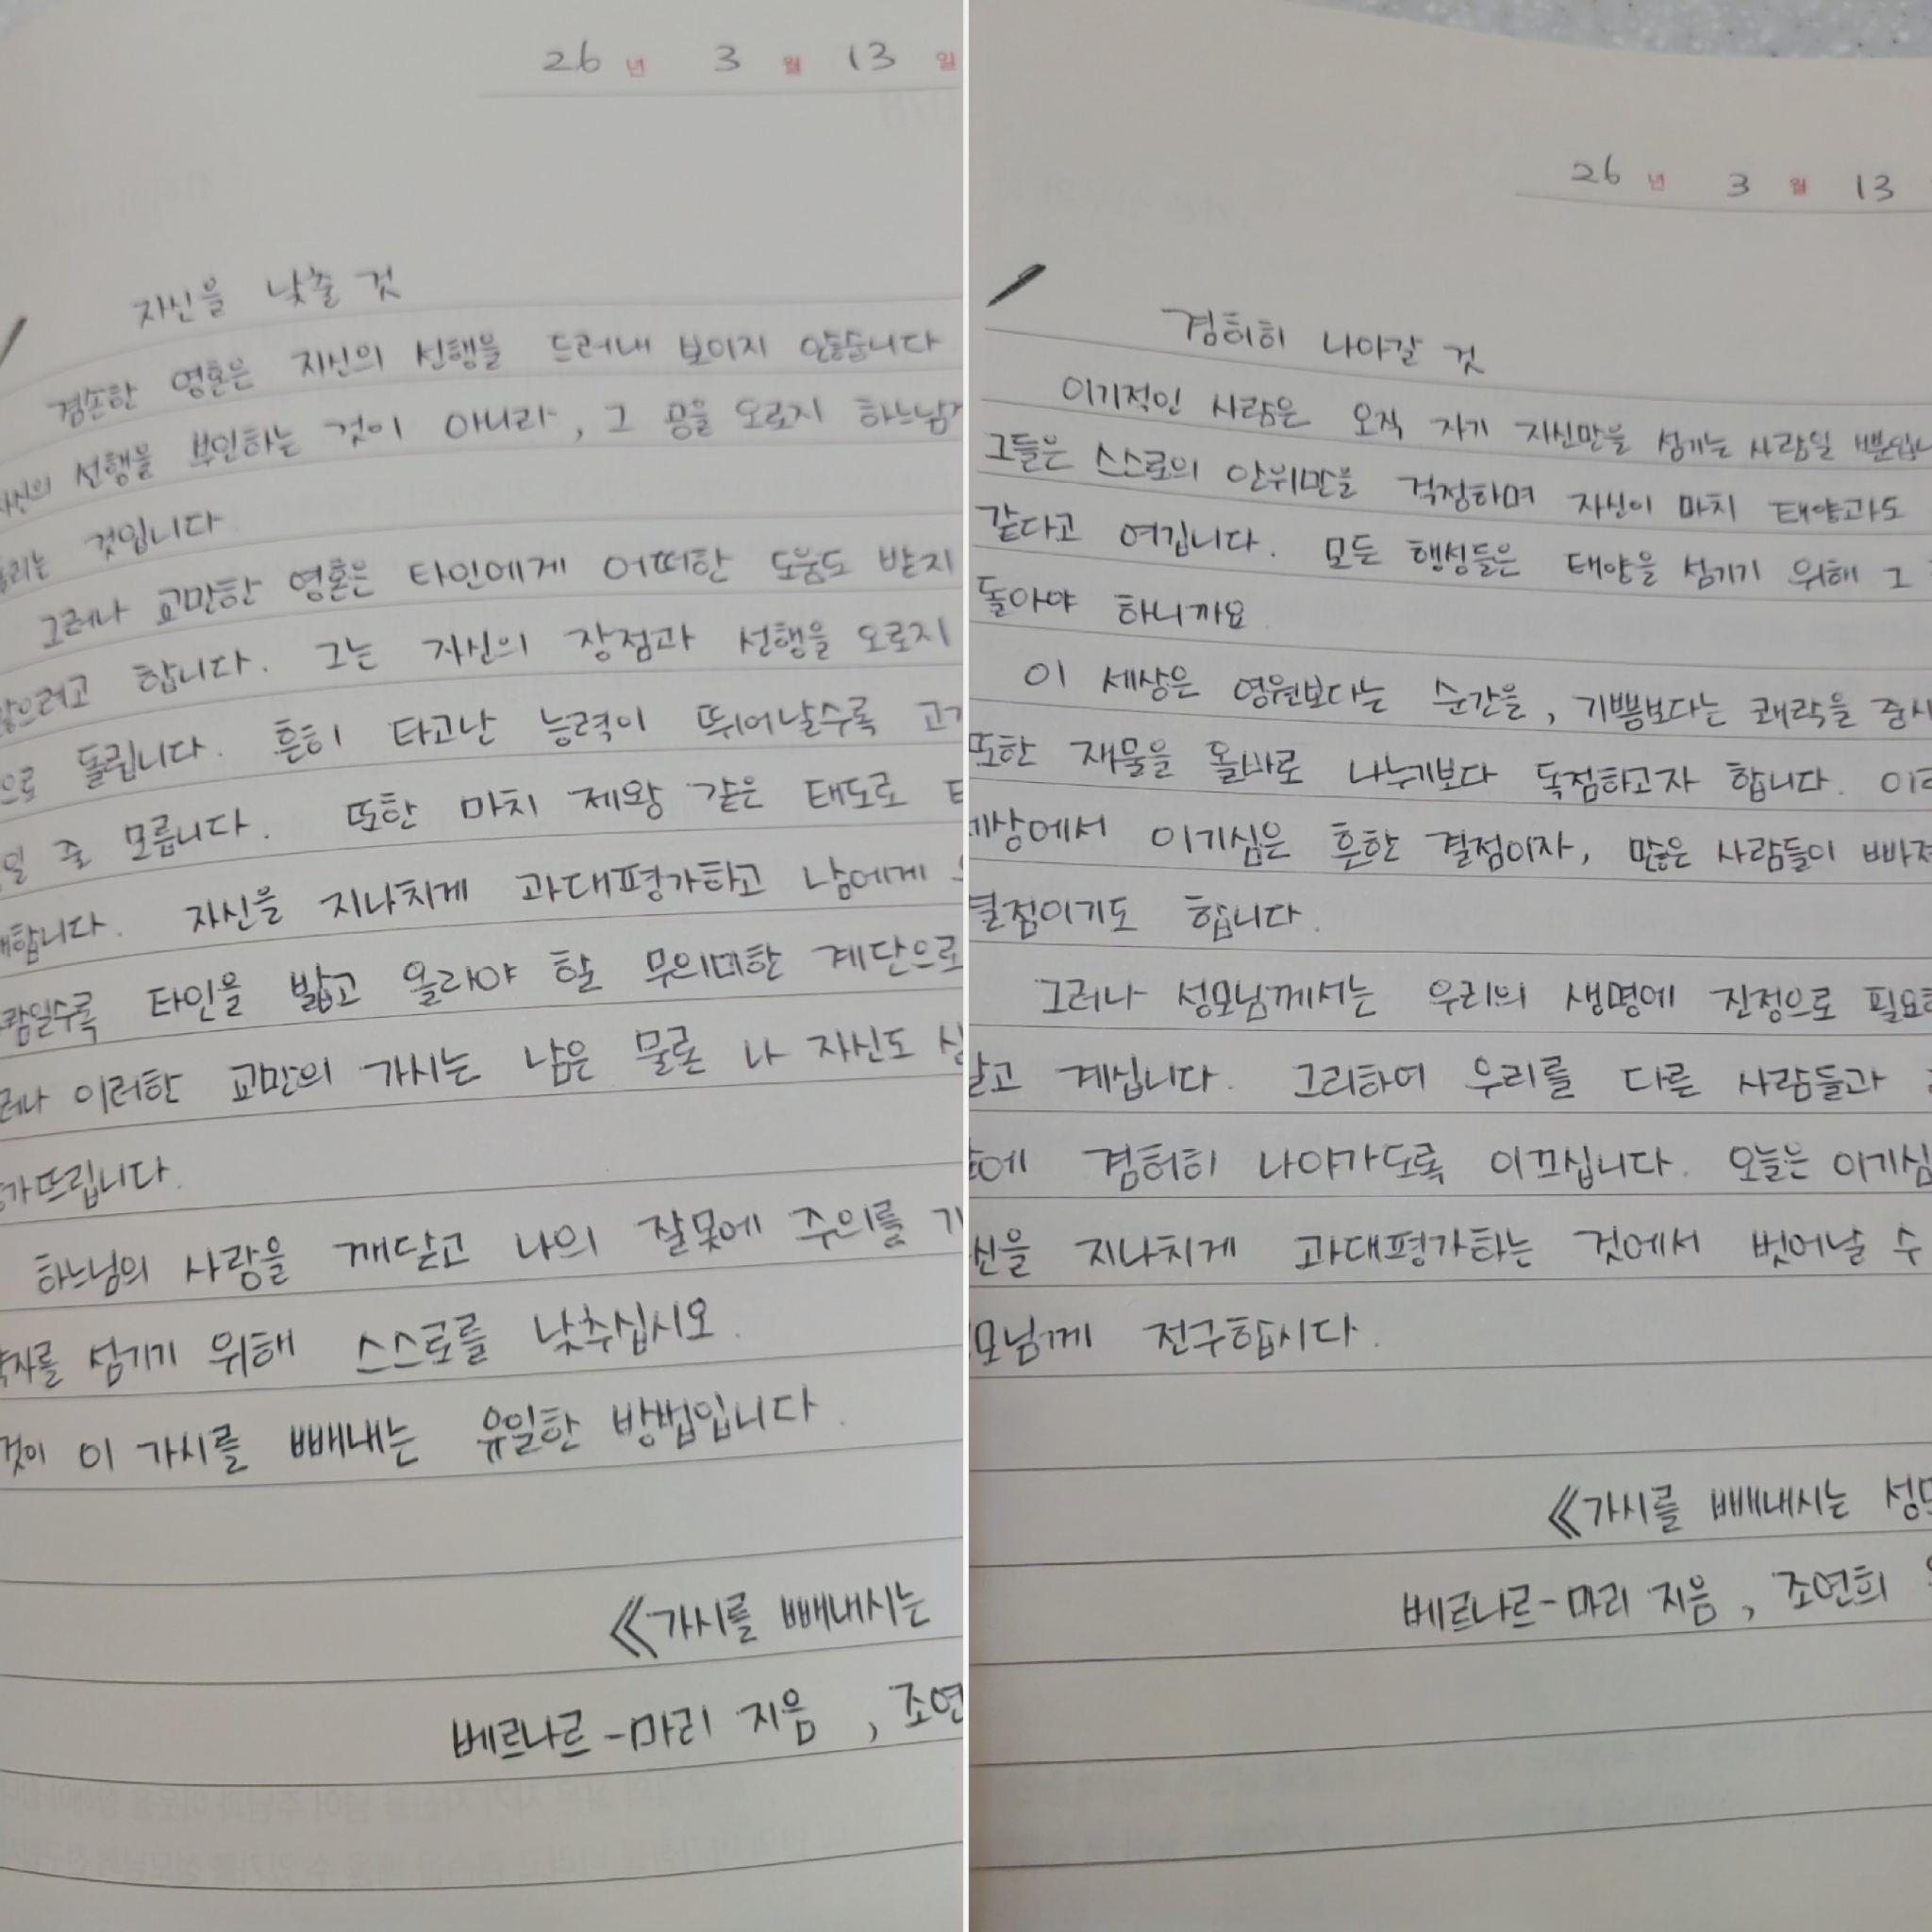 26 년 3 월 13 일
자신을 낮출 것
겸손한 영혼은 자신의 선행을 드러내 보이지 않습니다
선행을 부인하는 것이 아니라, 그 공을 오로지 하느님
것입니다.
그러나 교만한 영혼은 타인에게 어떠한 도움도 받지
않으려고 합니다. 그는 자신의 장점과 선행을 오로지
으로 돌립니다. 흔히 타고난 능력이 뛰어날수록
줄 모릅니다. 또한 마치 제왕 같은 태도로
자신을 지나치게 과대평가하고 남에게
타인을 밟고 올라야 할 무의미한 계단으로
이러한 교만의 가시는 남은 물론 나 자신도
하느님의 사랑을 깨닫고 나의 잘못에 주의를
섬기기 위해 스스로를 낮추십시오.
것이 이 가시를 빼내는 유일한 방법입니다.
《가시를 빼내시는
베르나르-마리 지음, 조연
26 년 3 월 13
겸허히 나아갈 것
이기적인 사람은 오직 자기 자신만을 섬기는 사람일
그들은 스스로의 안위만을 걱정하며 자신이 마치 태양과도
같다고 여깁니다. 모든 행성들은 태양을 섬기기 위해 그
돌아야 하니까요.
이 세상은 영원보다는 순간을, 기쁨보다는 쾌락을
또한 재물을 올바로 나누기보다 독점하고자 합니다.
이기심은 흔한 결점이자, 많은 사람들이
결점이기도 합니다.
그러나 성모님께서는 우리의 생명에 진정으로
계십니다. 그리하여 우리를 다른 사람들과
겸허히 나아가도록 이끄십니다. 오늘은
지나치게 과대평가하는 것에서 벗어날 수
전구합시다.
《가시를 빼내시는
베르나르-마리 지음, 조연희